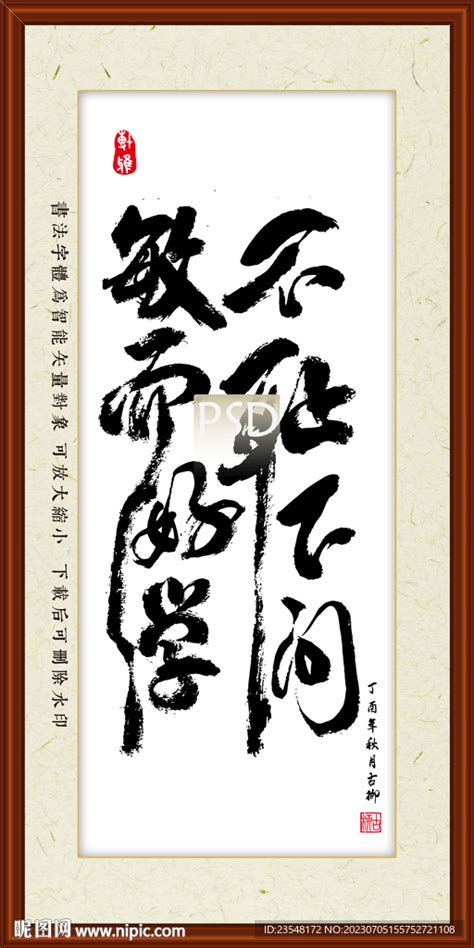 敏而好学
不耻下问
丁酉年秋月古
書法字體爲智能矢量對象 可放大縮小 下載后可刪除水印
PSD
昵图网 www.nipic.com
ID:23548172 NO:20230705155752721108